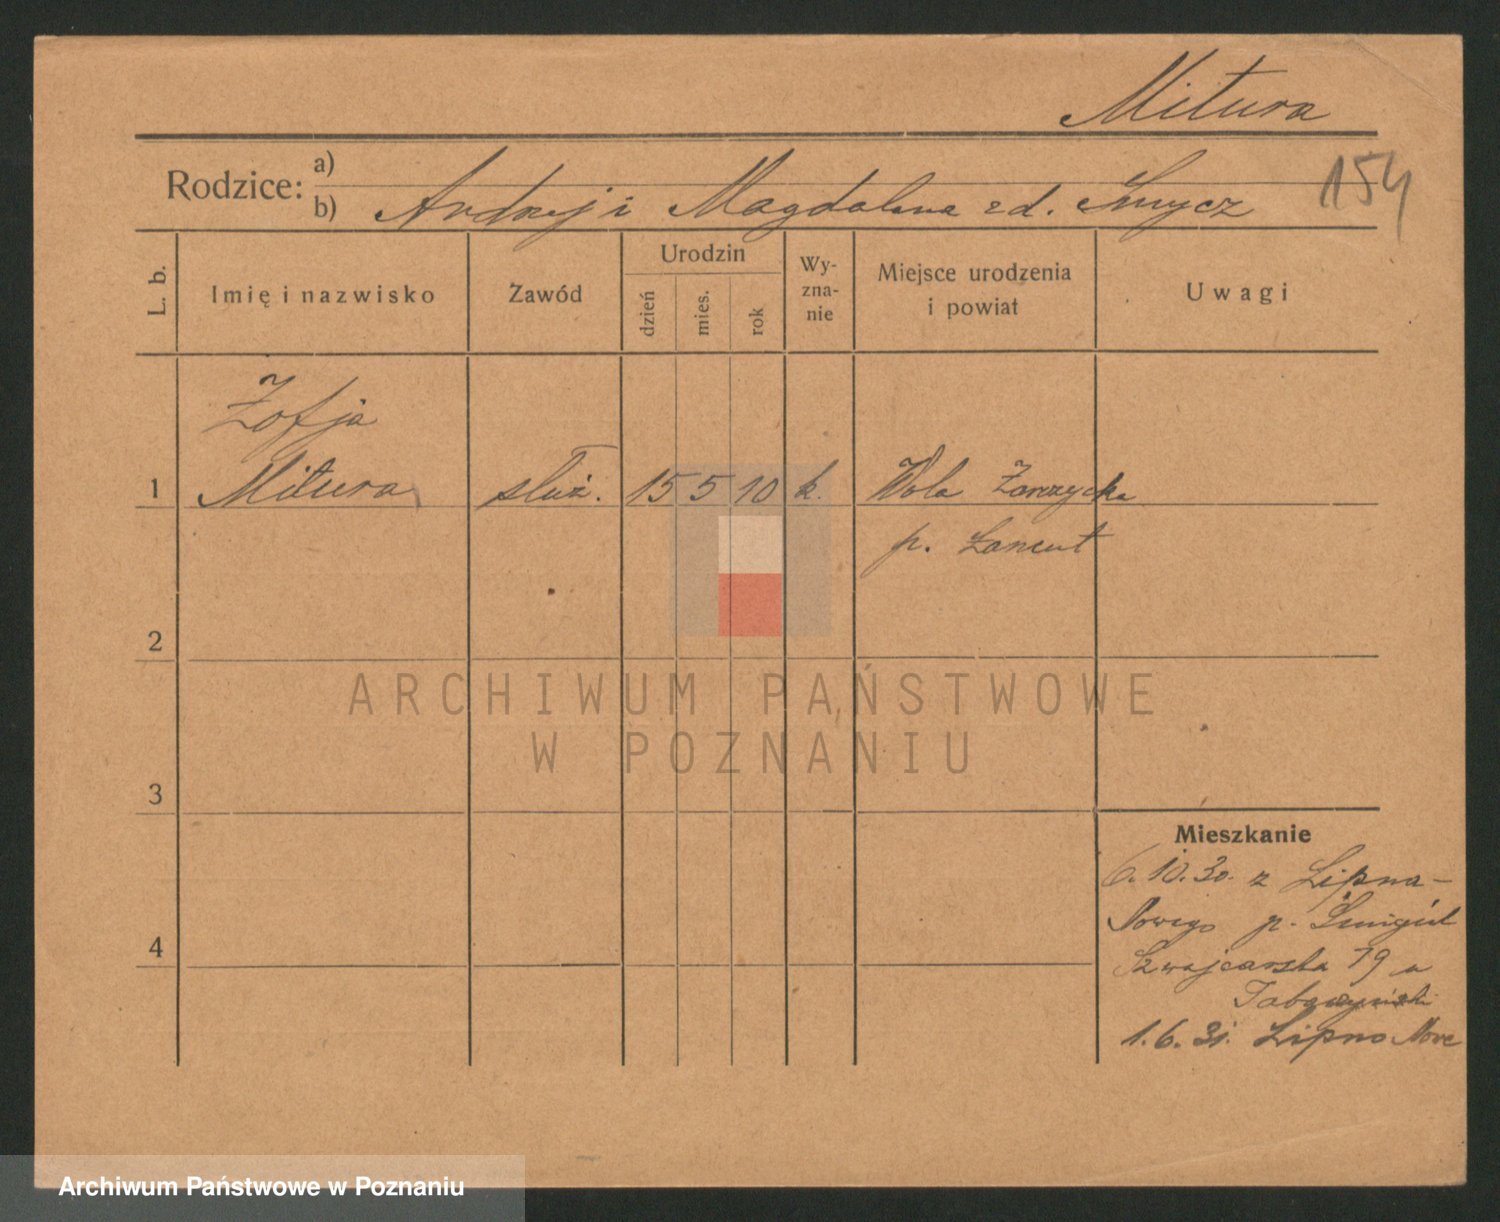 Mitura
154
Rodzice: a)
b) Andrzej i Magdalena zd. Smycz
L. b.
Imię i nazwisko
Zawód
Urodzin
dzień
mies.
rok
Wy-
zna-
nie
Miejsce urodzenia
i powiat
Uwagi
Zofja
1 Mitura służ. 15 5 10 k. Wola Żarczycka
p. Łańcut
2
3
4
Mieszkanie
6.10.30. z Lipna-
Nowego p. Śmigiel
Szwajcarska 19 u
1.6.31. Lipno Nowe
ARCHIWUM PAŃSTWOWE
W POZNANIU
Archiwum Państwowe w Poznaniu